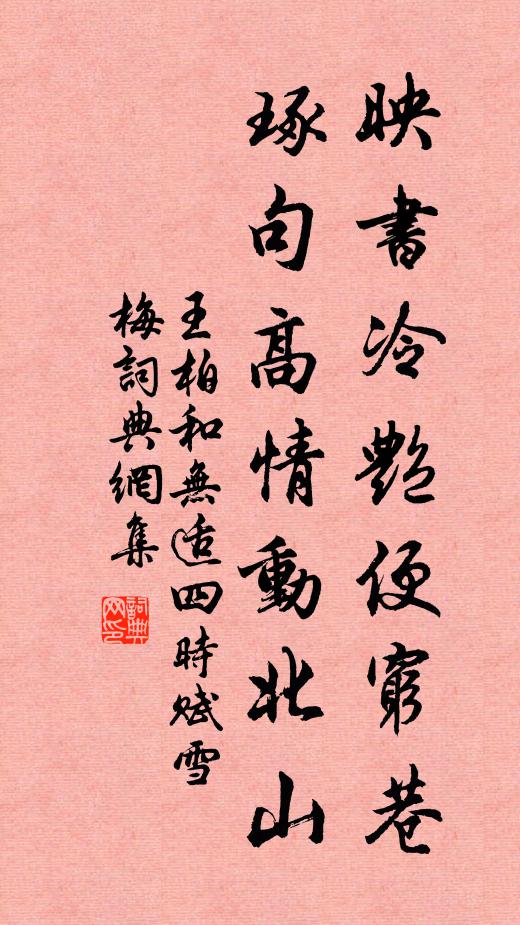 映書冷艷便窮巷
琢句高情動北山
王柏和無适四時賦雪
梅詞典網集
詞典
网印